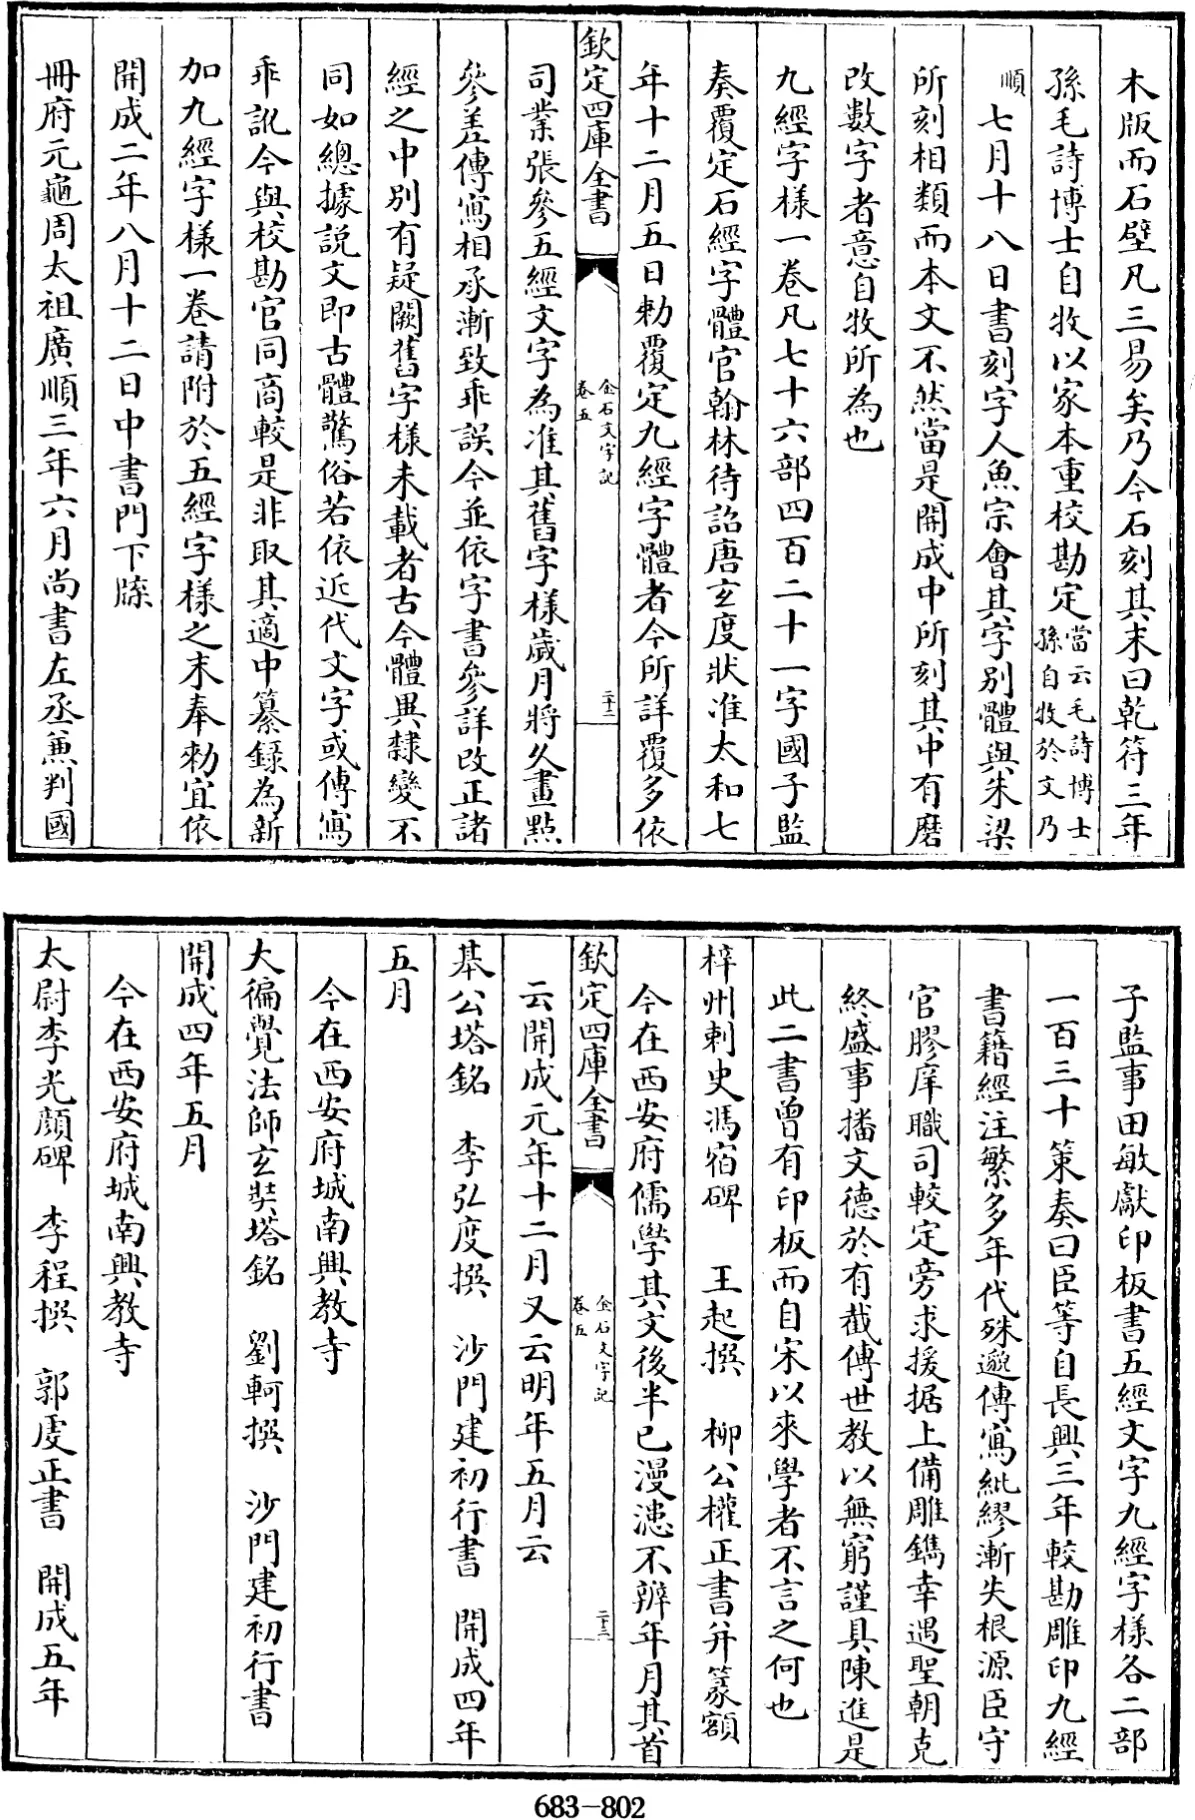 木版而石壁凡三易矣乃今石刻其末曰乾符三年
孫毛詩博士自牧以家本重校勘定當云毛詩博士
孫自牧於文乃
順七月十八日書刻字人魚宗會其字別體與朱梁
所刻相類而本文不然當是開成中所刻其中有磨
改數字者意自牧所為也
九經字様一巻凡七十六部四百二十一字國子監
奏覆定石經字體官翰林待詔唐玄度狀准太和七
年十二月五日勅覆定九經字體者今所詳覆多依
欽定四庫全書
金石文字記
卷五
二十二
司業張參五經文字為准其舊字様歲月將久畫點
參差傳寫相承漸致乖誤今並依字書參詳改正諸
經之中別有疑闕舊字様未載者古今體異隸變不
同如總據説文即古體驚俗若依近代文字或傳寫
乖訛今與校勘官同商較是非取其適中纂錄為新
加九經字様一巻請附於五經字様之末奉勅宜依
開成二年八月十二日中書門下牒
冊府元龜周太祖廣順三年六月尚書左丞兼判國
子監事田敏獻印板書五經文字九經字様各二部
一百三十策奏曰臣等自長興三年較勘雕印九經
書籍經注繁多年代殊邈傳寫紕繆漸失根源臣守
官膠庠職司較定旁求援据上備雕鐫幸遇聖朝克
終盛事播文德於有截傳世教以無窮謹具陳進是
此二書曾有印板而自宋以來學者不言之何也
梓州刺史馮宿碑　王起撰　柳公權正書并篆額
今在西安府儒學其文後半已漫漶不辨年月其首
欽定四庫全書
金石文字記
卷五
二十三
云開成元年十二月又云明年五月云
基公塔銘　李弘度撰　沙門建初行書　開成四年
五月
今在西安府城南興教寺
大徧覺法師玄奘塔銘　劉軻撰　沙門建初行書
開成四年五月
今在西安府城南興教寺
太尉李光顔碑　李程撰　郭虔正書　開成五年
683-802